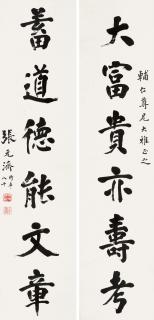 大富貴亦壽考
輔仁尊兄大雅正之
蓄道德能文章
張元濟
時年八十